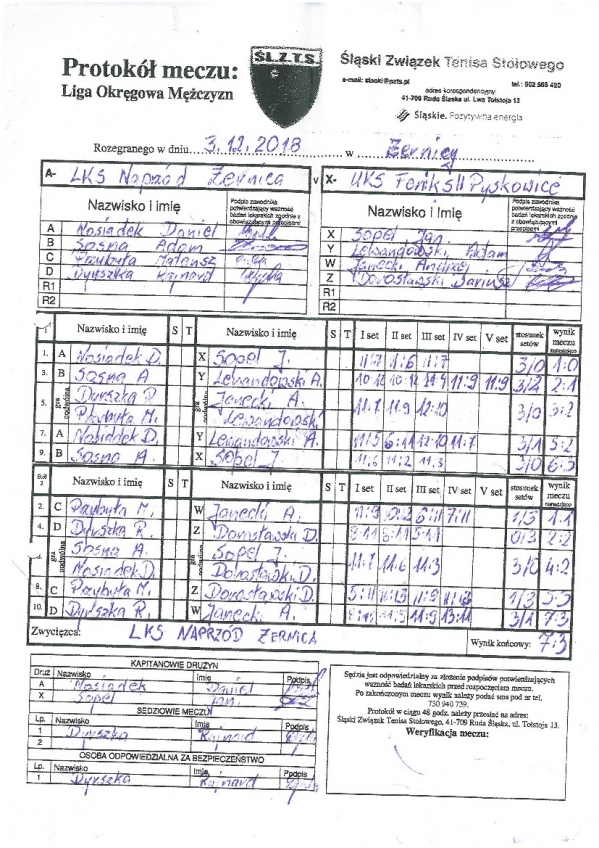 Protokół meczu:
Liga Okręgowa Mężczyzn
ŚL.Z.T.S.
Śląski Związek Tenisa Stołowego
e-mail: slaski@pzts.pl tel.: 502 565 420
adres korespondencyjny
41-709 Ruda Śląska ul. Lwa Tołstoja 13
Śląskie. Pozytywna energia
Rozegranego w dniu 3.12.2018 w Żernicy
A- LKS Naprzód Żernica v X- UKS Feniks II Pyskowice
Nazwisko i imię Podpis zawodnika potwierdzający ważność badań lekarskich zgodnie z obowiązującymi przepisami
A Nosiadek Daniel
B Sosna Adam
C Przybyła Mateusz
D Dyrszka Rajnard
R1
R2
Nazwisko i Imię Podpis zawodnika potwierdzający ważność badań lekarskich zgodnie z obowiązującymi przepisami
X Sopel Jan
Y Lewandowski Adam
W Janecki Andrzej
Z Dorostawski Dariusz
R1
R2
Nazwisko i imię S T Nazwisko i imię S T I set II set III set IV set V set stosunek setów wynik meczu
1. A Nosiadek D. X Sopel J. 11:7 11:6 11:7 3/0 1:0
3. B Sosna A Y Lewandowski A. 11:9 11:9 3/2 2:1
5. gra podwójna Dyrszka R Janecki A.
Przybyła M. Lewandowski 11:7 11:9 12:10 3/0 3:2
7. A Nosiadek D. Y Lewandowski A. 11:5 12:10 11:7 3/1 5:2
9. B Sosna A. X Sopel J. 11:6 11:2 11:3 3/0 6:3
Nazwisko i imię S T Nazwisko i imię S T I set II set III set IV set V set stosunek setów wynik meczu
2. C Przybyła M. W Janecki A. 6:11 7:11 1/3 1:1
4. D Dyrszka R. Z Dorostawski D. 8:11 6:11 5:11 0/3 2:2
gra podwójna Sosna A. Sopel J.
Nosiadek D. Dorostawski D. 11:7 11:6 11:3 3/0 4:2
8. C Przybyła M. Z Dorostawski D. 5:11 1/3 5:3
10. D Dyrszka R. W Janecki A. 11:5 11:9 13:11 3/1 7:3
Zwycięzca: LKS NAPRZÓD ŻERNICA Wynik końcowy: 7:3
KAPITANOWIE DRUŻYN
Druż Nazwisko Imię Podpis
A Nosiadek Daniel
X Sopel Jan
SEDZIOWIE MECZU
Lp. Nazwisko Imię Podpis
1 Dyrszka Rajnard
2
OSOBA ODPOWIEDZIALNA ZA BEZPIECZEŃSTWO
Lp. Nazwisko Imię Podpis
1 Dyrszka Rajnard
Sędzia jest odpowiedzialny za złożenie podpisów potwierdzających
ważność badań lekarskich przed rozpoczęciem meczu.
Po zakończonym meczu wynik należy podać sms pod nr tel.
730 940 739.
Protokół w ciągu 48 godz. należy przesłać na adres:
Śląski Związek Tenisa Stołowego, 41-709 Ruda Śląska, ul. Tołstoja 13.
Weryfikacja meczu: